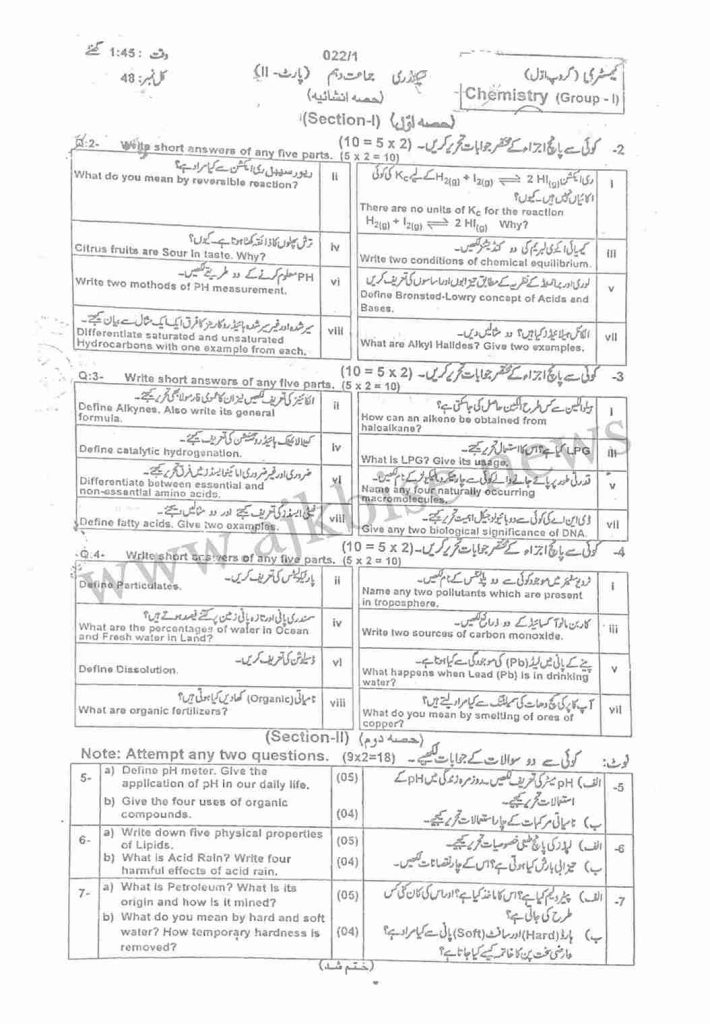 022/1
وقت : 1:45 گھنٹے
کل نمبر: 48
سیکنڈری جماعت دہم (پارٹ-II)
(حصہ انشائیہ)
کیمسٹری (گروپ اول)
Chemistry (Group - I)
(Section-I) (حصہ اول)
2- کوئی سے پانچ اجزاء کے مختصر جوابات تحریر کریں۔ (10 = 5 x 2)
Q:2- Write short answers of any five parts. (5 x 2 = 10)
i
ری ایکشن H2(g) + I2(g) ⇌ 2 HI(g) کے لیے Kc کی کوئی
اکائیاں نہیں ہیں۔ کیوں؟
There are no units of Kc for the reaction
H2(g) + I2(g) ⇌ 2 HI(g) Why?
ii
ریورسیبل ری ایکشن سے کیا مراد ہے؟
What do you mean by reversible reaction?
iii
کیمیائی ایکوی لبریم کی دو کنڈیشنز لکھیں۔
Write two conditions of chemical equilibrium.
iv
ترش پھلوں کا ذائقہ کھٹا ہوتا ہے۔ کیوں؟
Citrus fruits are Sour in taste. Why?
v
لوری اور برانسٹڈ کے نظریہ کے مطابق تیزابوں اور اساسوں کی تعریف کریں
Define Bronsted-Lowry concept of Acids and
Bases.
vi
PH معلوم کرنے کے دو طریقے لکھیں۔
Write two mothods of PH measurement.
vii
الکائل ہیلائیڈز کیا ہیں؟ دو مثالیں دیں۔
What are Alkyl Halides? Give two examples.
viii
سیر شدہ اور غیر سیر شدہ ہائیڈروکاربنز کا فرق ایک ایک مثال سے بیان کیجئے۔
Differentiate saturated and unsaturated
Hydrocarbons with one example from each.
3- کوئی سے پانچ اجزاء کے مختصر جوابات تحریر کریں۔ (10 = 5 x 2)
Q:3- Write short answers of any five parts. (5 x 2 = 10)
i
ہیلوالکین سے کس طرح الکین حاصل کی جا سکتی ہے؟
How can an alkene be obtained from
haloalkane?
ii
الکائنز کی تعریف لکھیں نیز ان کا عمومی فارمولا بھی تحریر کیجئے۔
Define Alkynes. Also write its general
formula.
iii
LPG کیا ہے؟ اس کا استعمال تحریر کیجئے۔
What is LPG? Give its usage.
iv
کیٹالائیٹک ہائیڈروجنیشن کی تعریف کیجئے۔
Define catalytic hydrogenation.
v
قدرتی طور پر پائے جانے والے کوئی سے چار میکرو مالیکیولز کے نام لکھیں۔
Name any four naturally occurring
macromolecules.
vi
ضروری اور غیر ضروری امائنو ایسڈز میں فرق تحریر کیجئے۔
Differentiate between essential and
non-essential amino acids.
vii
ڈی این اے کی کوئی سے دو بائیولوجیکل اہمیت تحریر کیجئے۔
Give any two biological significance of DNA.
viii
فیٹی ایسڈز کی تعریف کیجئے اور دو مثالیں دیجئے۔
Define fatty acids. Give two examples.
www.ajkbise.news
4- کوئی سے پانچ اجزاء کے مختصر جوابات تحریر کریں۔ (10 = 5 x 2)
Q.4- Write short answers of any five parts. (5 x 2 = 10)
i
ٹروپوسفیئر میں موجود کوئی سے دو پلوٹنٹس کے نام لکھیں۔
Name any two pollutants which are present
in troposphere.
ii
پارٹیکولیٹس کی تعریف کریں۔
Define Particulates.
iii
کاربن مانو آکسائیڈ کے دو ذرائع لکھیں۔
Write two sources of carbon monoxide.
iv
سمندری پانی اور تازہ پانی زمین پر کتنے فیصد ہوتے ہیں؟
What are the percentages of water in Ocean
and Fresh water in Land?
v
پینے کے پانی میں لیڈ (Pb) کی موجودگی سے کیا ہوتا ہے۔
What happens when Lead (Pb) is in drinking
water?
vi
ڈسلوشن کی تعریف کریں۔
Define Dissolution.
vii
آپ کاپر کی کچ دھات کی سمیلٹنگ سے کیا مراد لیتے ہیں؟
What do you mean by smelting of ores of
copper?
viii
نامیاتی (Organic) کھادیں کیا ہوتی ہیں؟
What are organic fertilizers?
(Section-II) (حصہ دوم)
نوٹ: کوئی سے دو سوالات کے جوابات لکھیے۔
Note: Attempt any two questions. (9x2=18)
5- a) Define pH meter. Give the (05)
application of pH in our daily life.
b) Give the four uses of organic (04)
compounds.
5- الف) pH میٹر کی تعریف لکھیں۔ روزمرہ زندگی میں pH کے
استعمالات تحریر کیجیے۔
ب) نامیاتی مرکبات کے چار استعمالات تحریر کیجیے۔
6- a) Write down five physical properties (05)
of Lipids.
b) What is Acid Rain? Write four (04)
harmful effects of acid rain.
6- الف) لپڈز کی پانچ طبعی خصوصیات تحریر کیجیے۔
ب) تیزابی بارش کیا ہوتی ہے؟ اس کے چار نقصانات لکھیں۔
7- a) What is Petroleum? What is its (05)
origin and how is it mined?
b) What do you mean by hard and soft (04)
water? How temporary hardness is
removed?
7- الف) پیٹرولیم کیا ہے؟ اس کا ماخذ کیا ہے؟ اور اس کی کان کنی کس
طرح کی جاتی ہے؟
ب) ہارڈ (Hard) اور سافٹ (Soft) پانی سے کیا مراد ہے؟
عارضی سخت پن کا خاتمہ کیسے کیا جاتا ہے؟
(ختم شد)